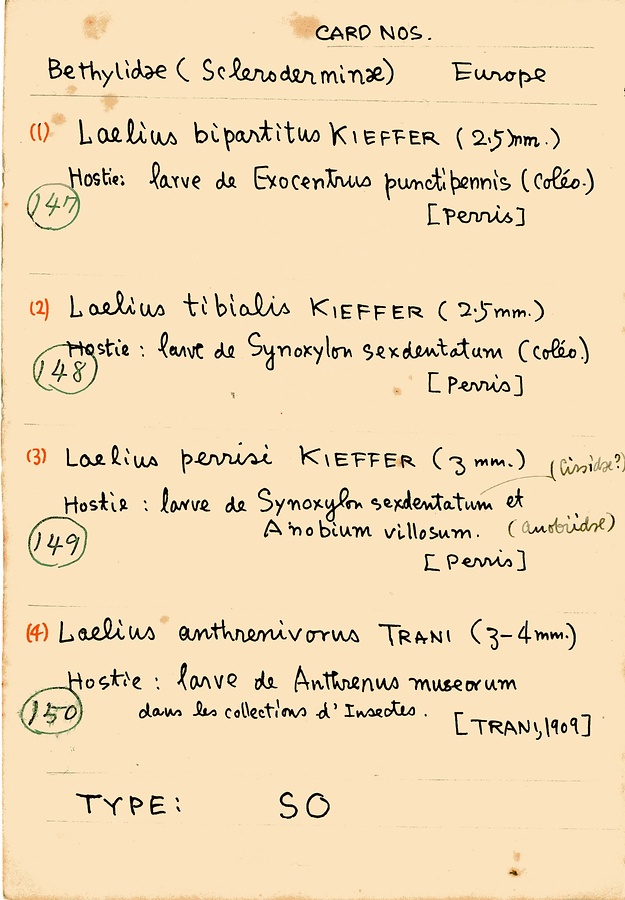 CARD NOS.
Bethylidæ (Scleroderminæ) Europe
(1) Laelius bipartitus KIEFFER (2.5)mm.)
Hostie: larve de Exocentrus punctipennis (coléo.)
147
[Perris]
(2) Laelius tibialis KIEFFER (2.5mm.)
Hostie : larve de Synoxylon sexdentatum (coléo.)
148
[Perris]
(3) Laelius perrisi KIEFFER (3 mm.) (Cissidæ?)
Hostie : larve de Synoxylon sexdentatum et
Anobium villosum. (Anobiidæ)
149
[Perris]
(4) Laelius anthrenivorus TRANI (3-4mm.)
Hostie : larve de Anthrenus museorum
150
dans les collections d'Insectes.
[TRANI, 1909]
TYPE: SO